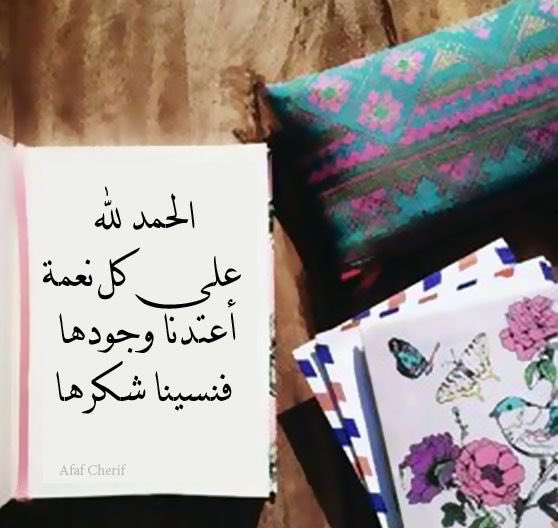 الحمد لله
على كل نعمة
أعتدنا وجودها
فنسينا شكرها
Afaf Cherif